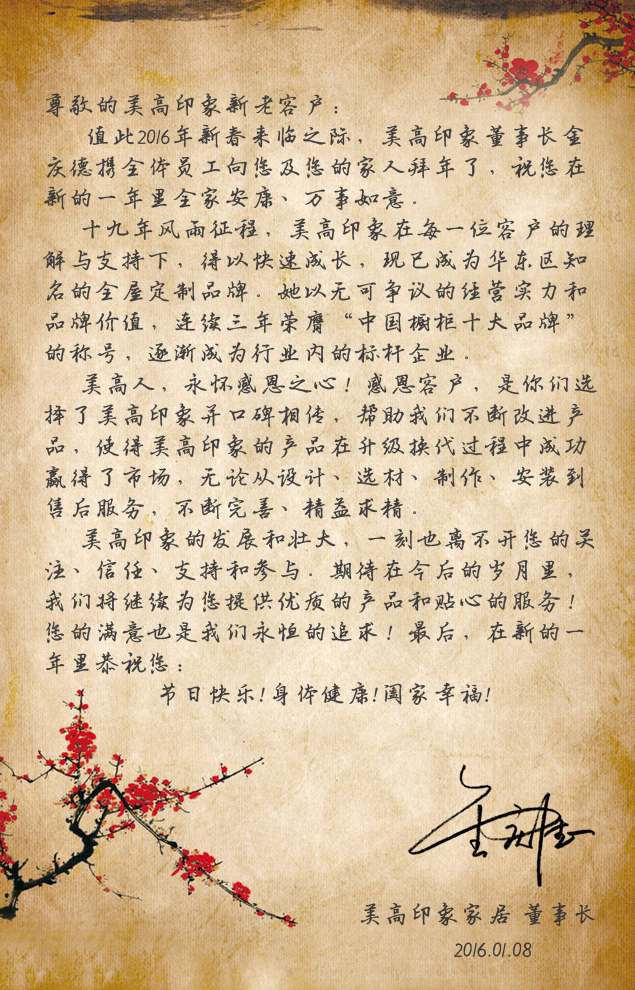 尊敬的美高印象新老客户：
值此2016年新春来临之际，美高印象董事长金
庆德携全体员工向您及您的家人拜年了，祝您在
新的一年里全家安康、万事如意。
十九年风雨征程，美高印象在每一位客户的理
解与支持下，得以快速成长，现已成为华东区知
名的全屋定制品牌。她以无可争议的经营实力和
品牌价值，连续三年荣膺“中国橱柜十大品牌”
的称号，逐渐成为行业内的标杆企业。
美高人，永怀感恩之心！感恩客户，是你们选
择了美高印象并口碑相传，帮助我们不断改进产
品，使得美高印象的产品在升级换代过程中成功
赢得了市场，无论从设计、选材、制作、安装到
售后服务，不断完善、精益求精。
美高印象的发展和壮大，一刻也离不开您的关
注、信任、支持和参与。期待在今后的岁月里，
我们将继续为您提供优质的产品和贴心的服务！
您的满意也是我们永恒的追求！最后，在新的一
年里恭祝您：
节日快乐！身体健康！阖家幸福！
金庆德
美高印象家居 董事长
2016.01.08